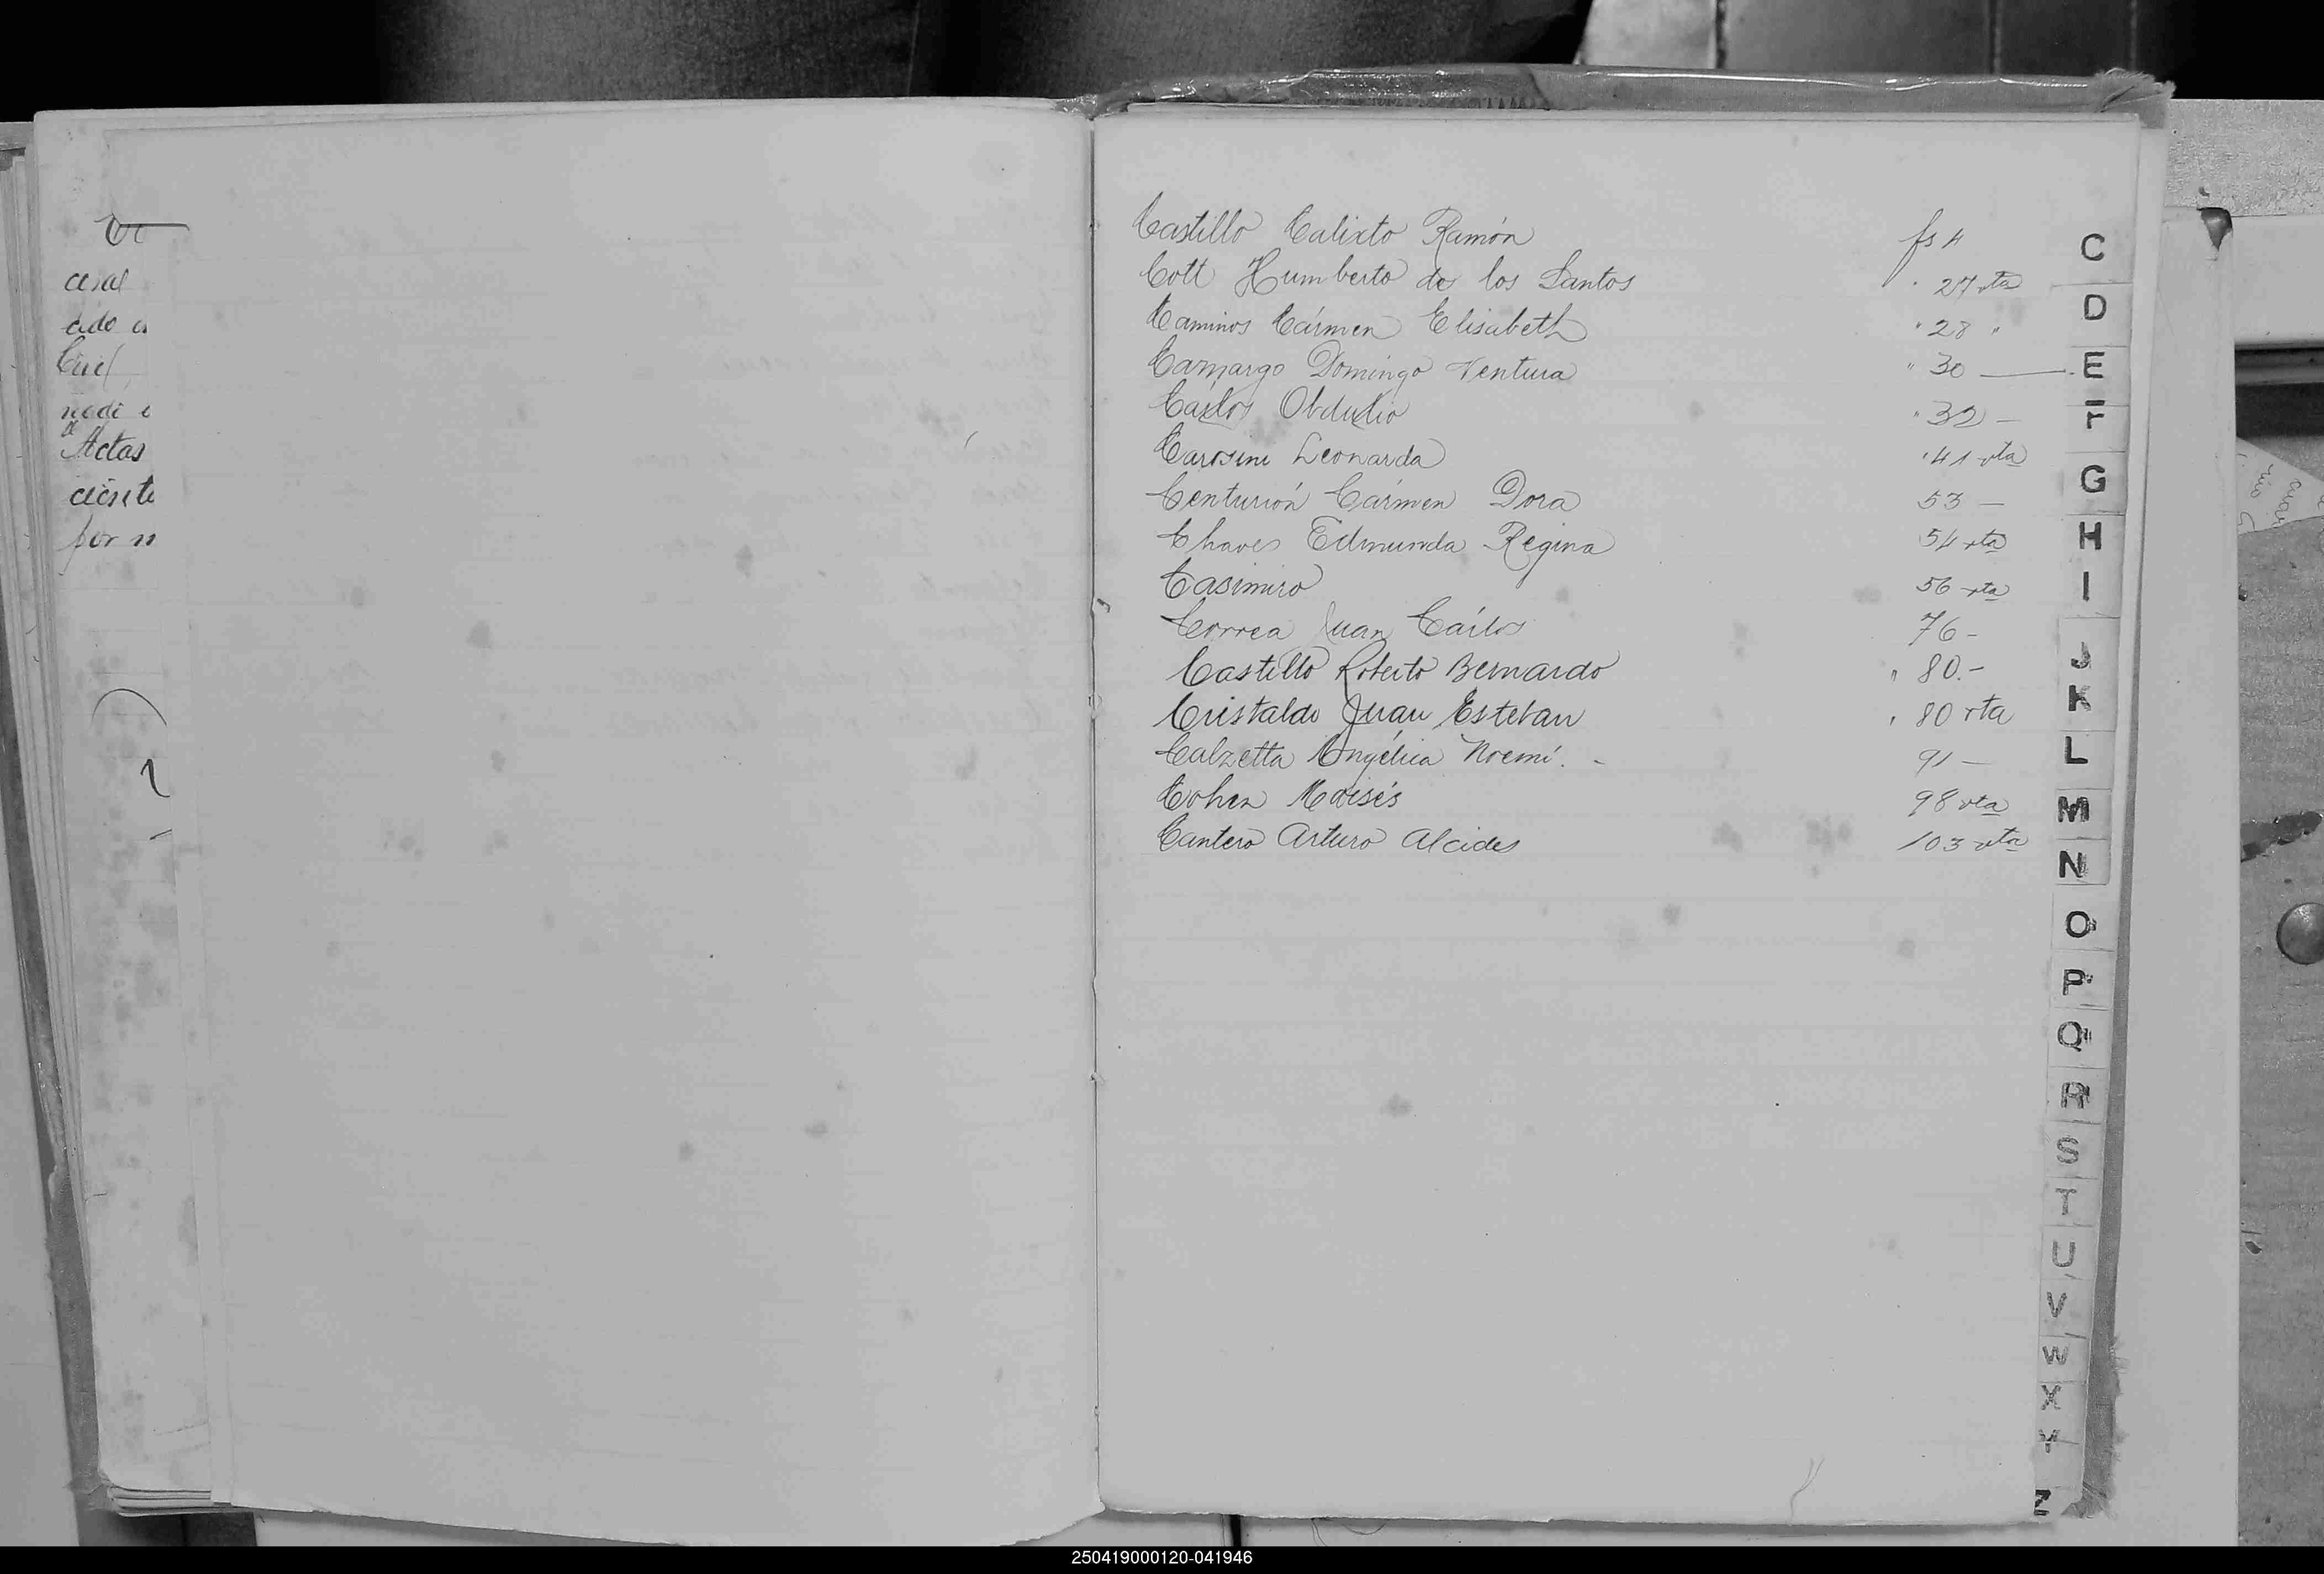 cido
Actas
por
Castillo Calixto Ramón fs 4
Cott Humberto de los Santos " 27 vta
Caminos Cármen Elisabeth " 28 "
Camargo Domingo Ventura " 30 —
Carlos Obdulio " 32 —
Leonarda " 41 vta
Centurión Cármen Dora 53 —
Chaves Edmunda Regina 54 vta
Casimiro 56 vta
Correa Juan Cárlos 76 -
Castillo Roberto Bernardo " 80.-
Cristaldo Juan Esteban " 80 vta
Calzetta Angélica Noemí. - 91 —
Cohen Moisés 98 vta
Cantero Arturo Alcides 103 vta
C
D
E
F
G
H
I
J
K
L
M
N
O
P
Q
R
S
T
U
V
W
X
Y
Z
250419000120-041946